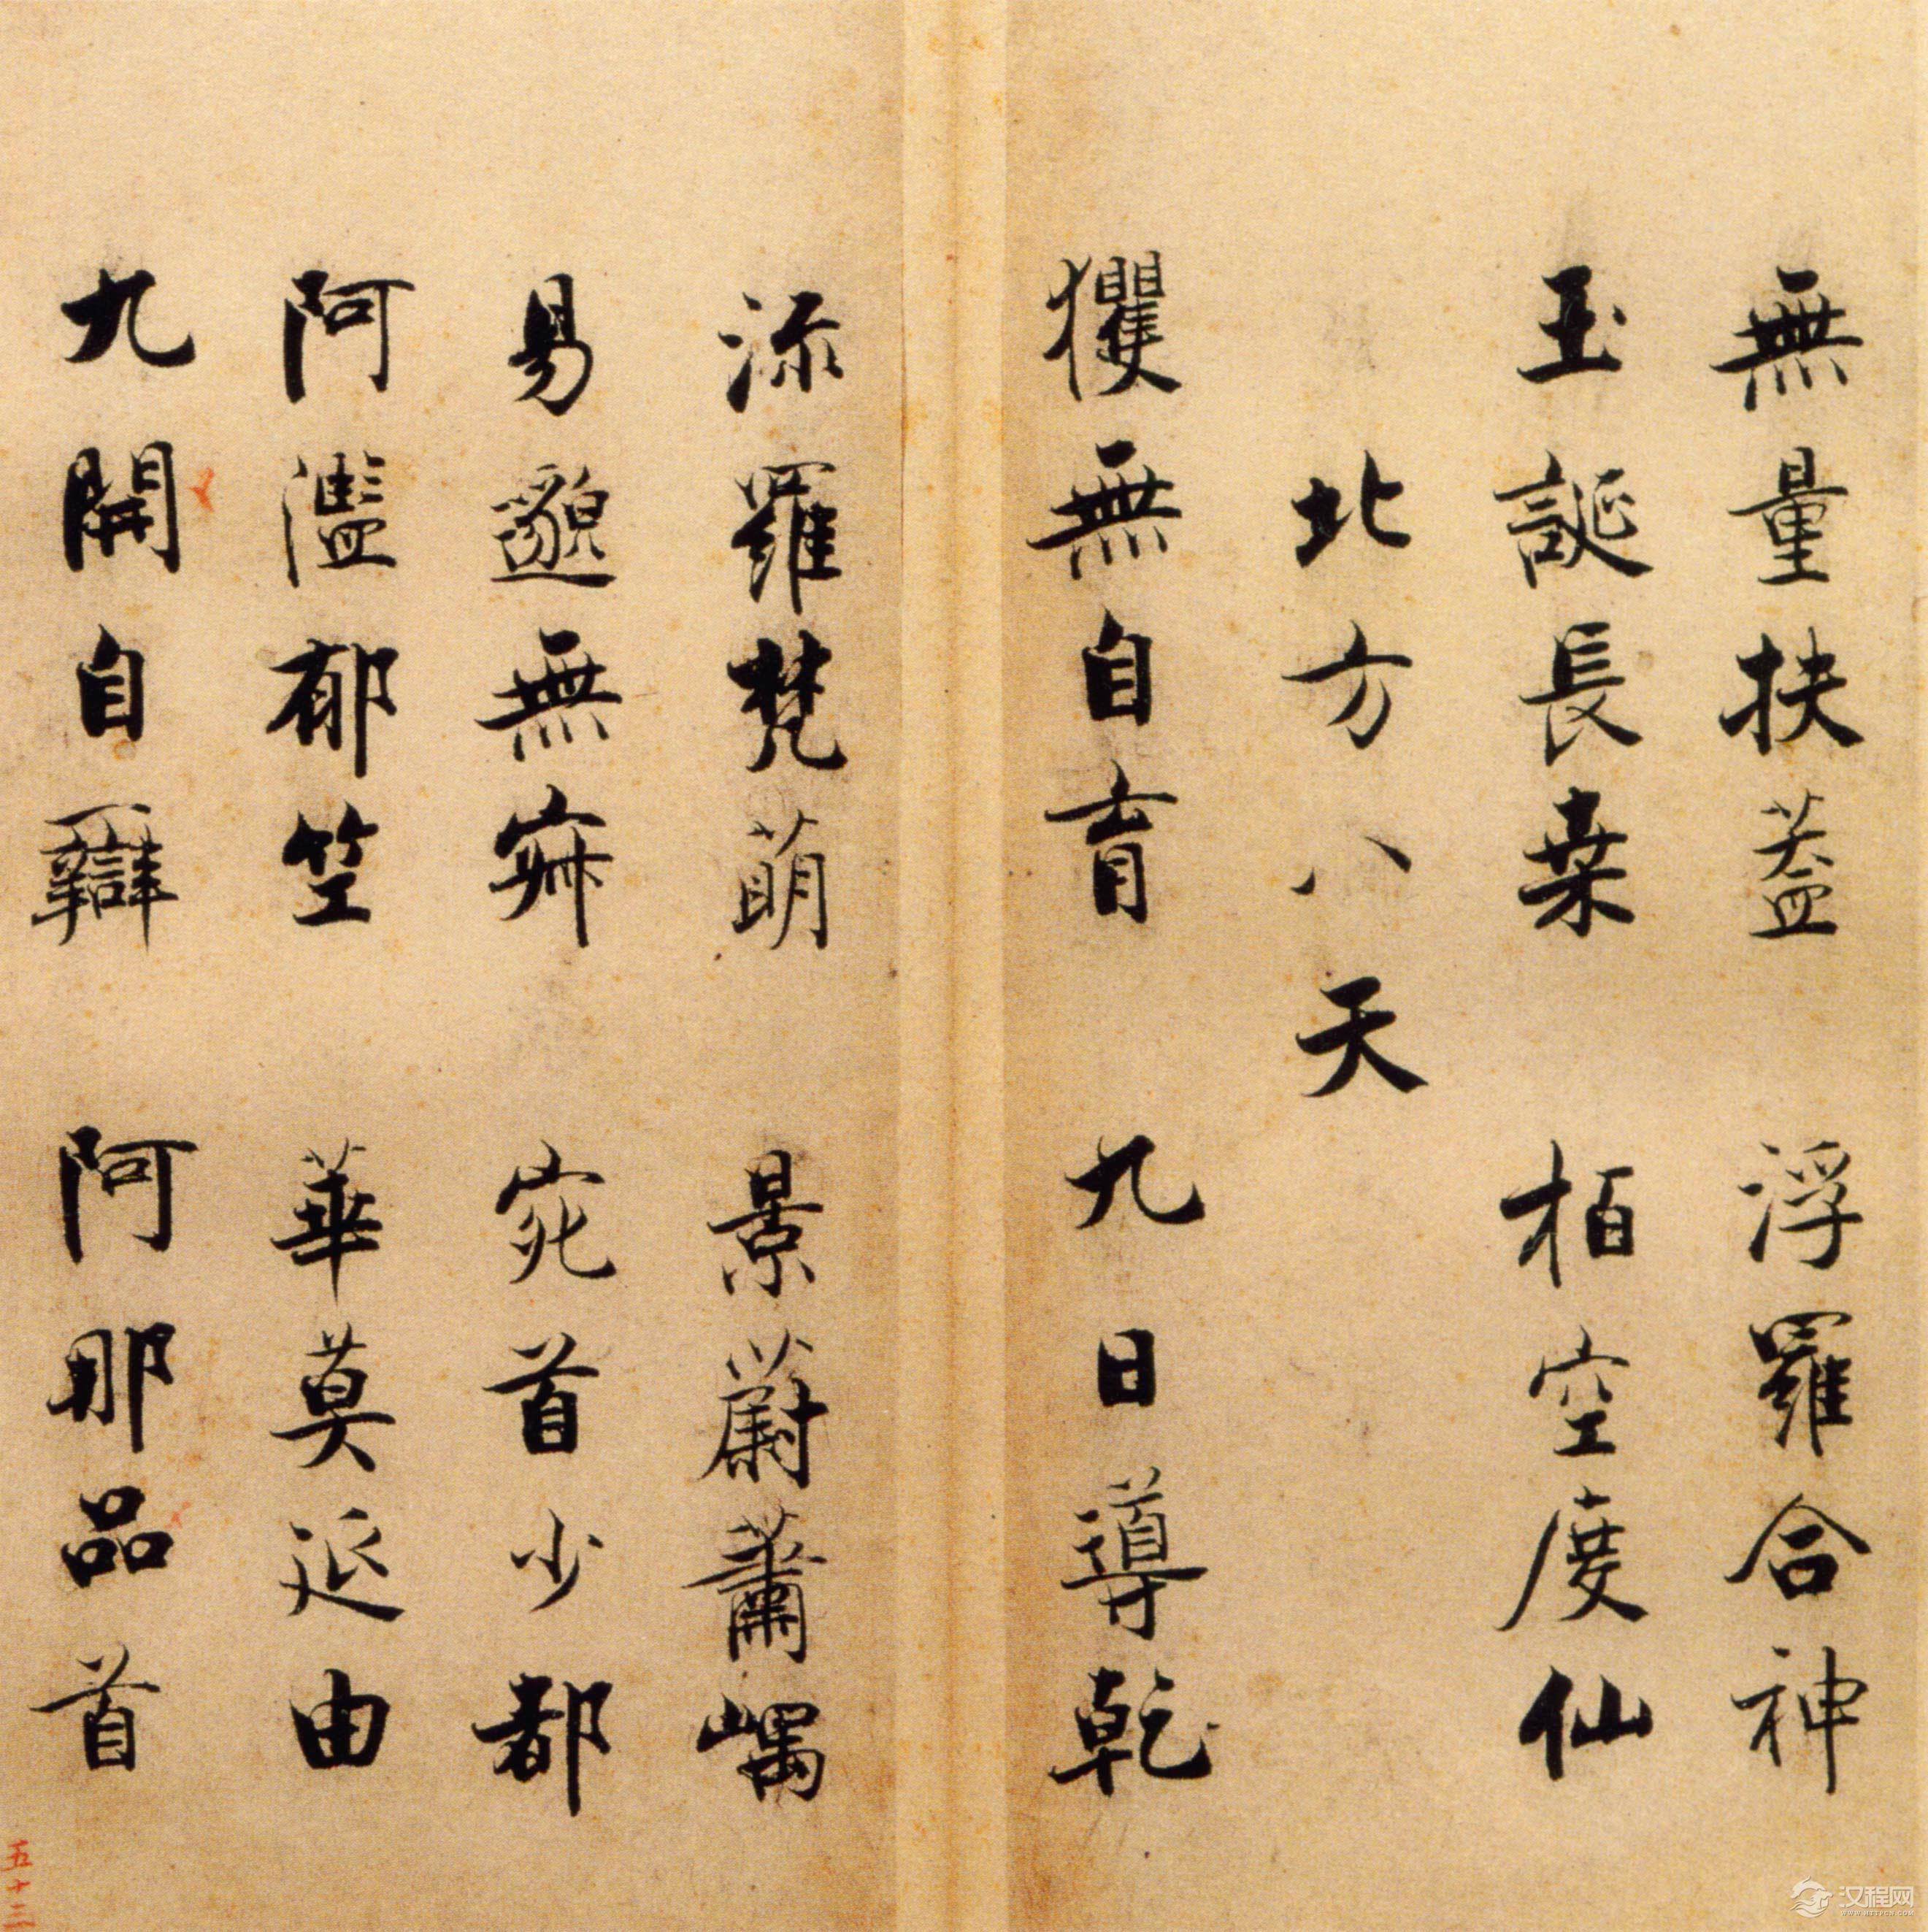 無量扶蓋 浮羅合神
玉誕長桒 栢空度仙
北方八天
玃無自育 九日導乾
流羅梵萌 景蔚蕭嵎
易邈無寂 宛首少都
阿濫郁竺 華莫延由
九開自辯 阿那品首
五十三
汉程网
WWW.HTTPCN.COM